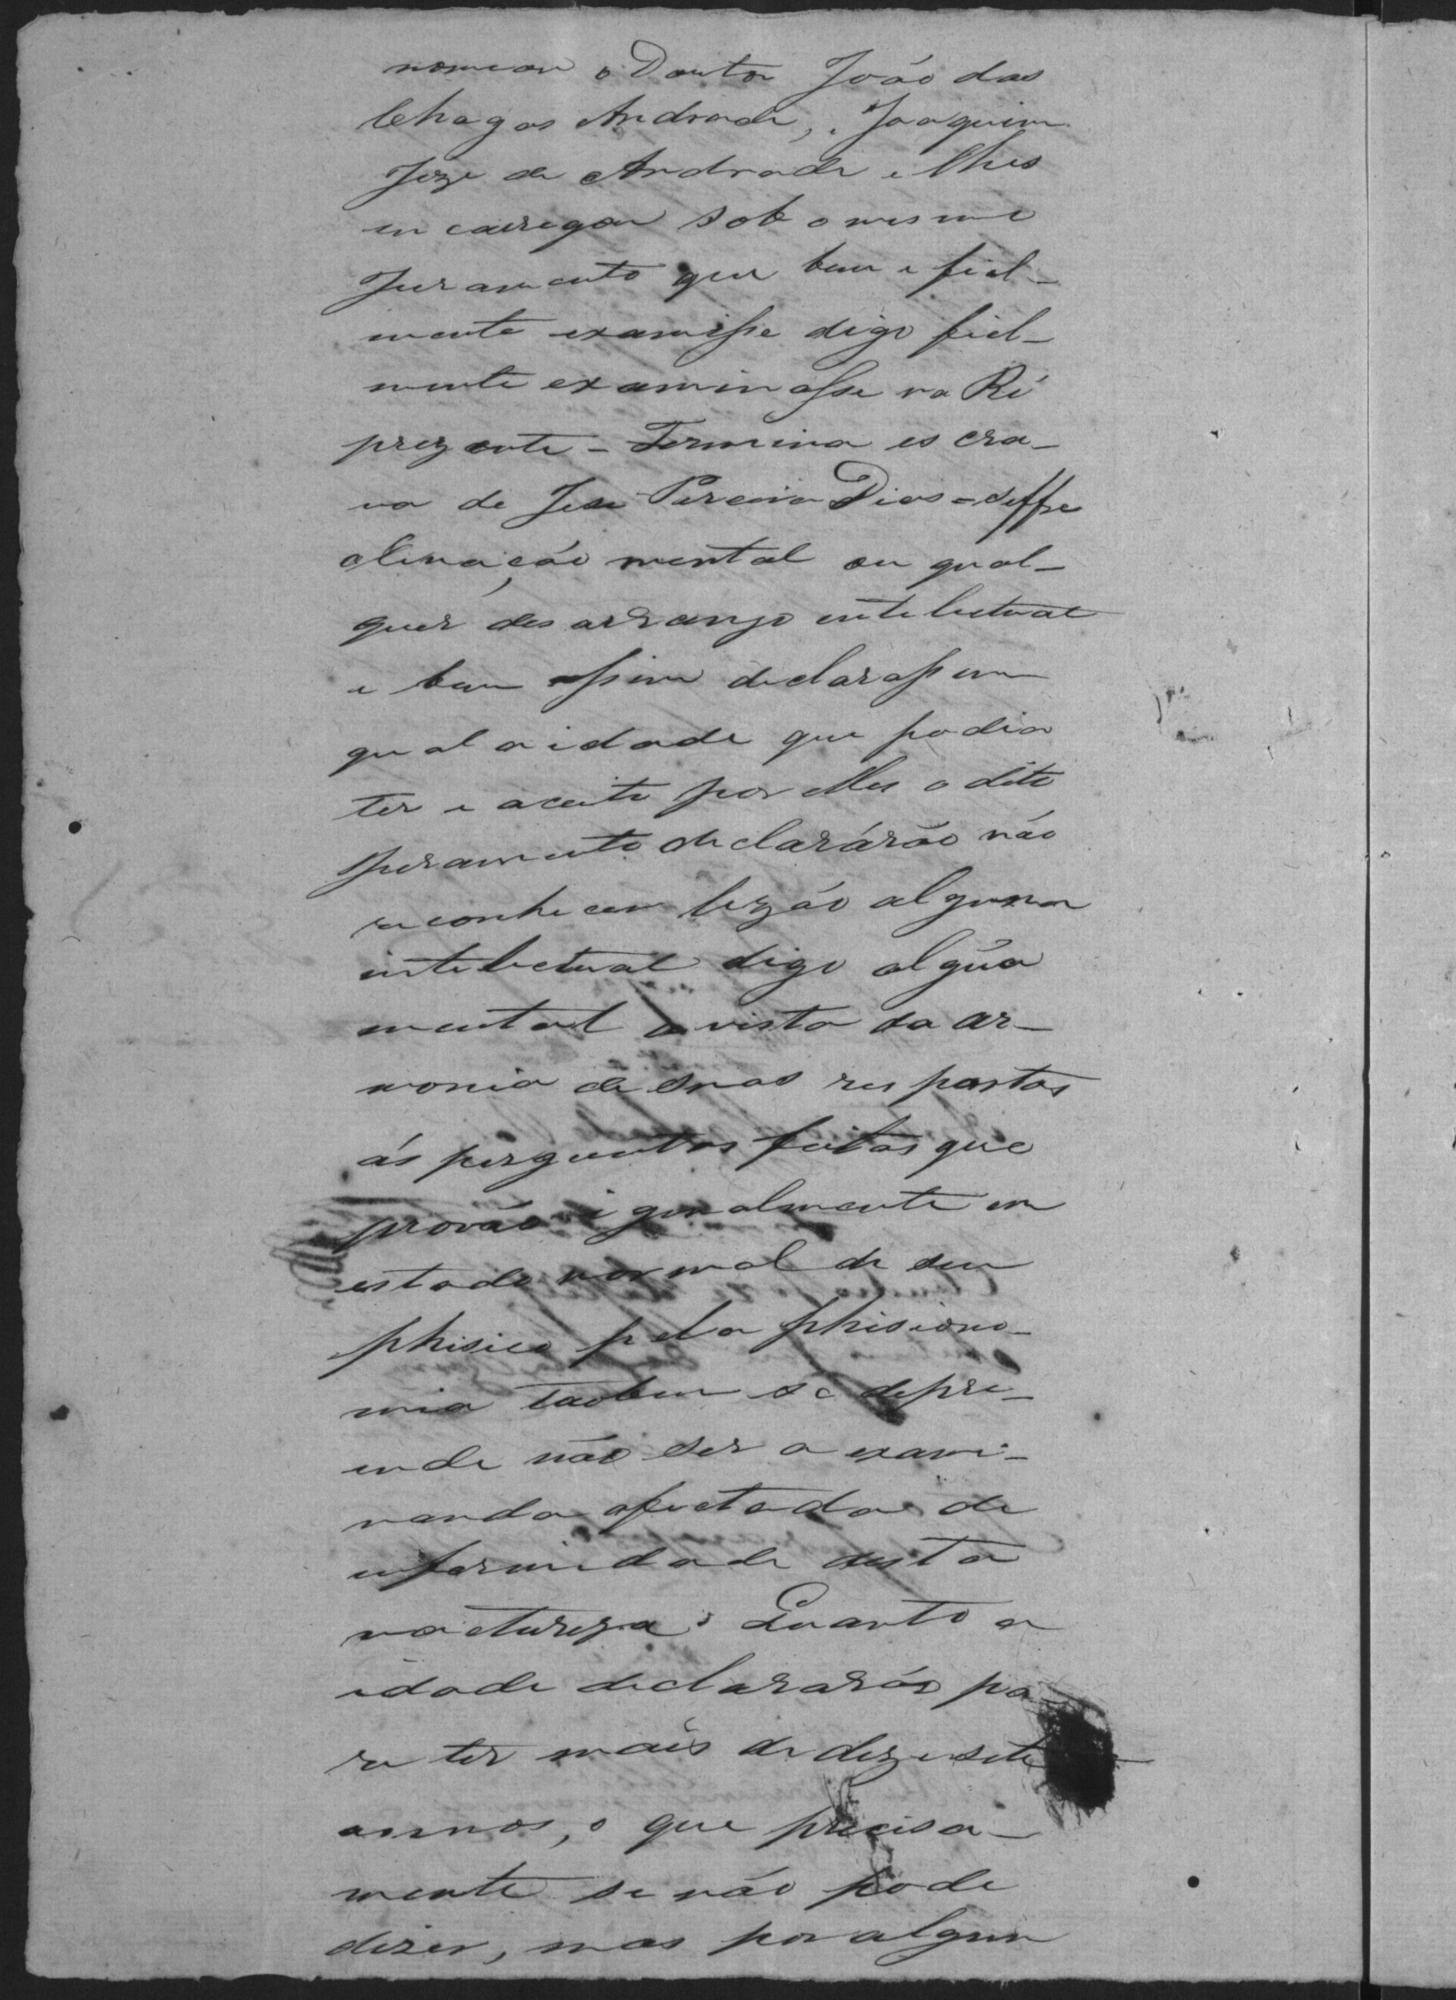 nomeou o Doutor João das
Chagas Andrade, e Joaquim
Joze de Andrade e lhes
en carregou sob o mesmo
Juramento que bem e fiel-
mente examisse digo fiel-
mente examinasse na Ré
prezente - Fermina es cra-
va de José Pereira Dias = soffre
alienação mental ou qual-
quer desarranjo intelectual
e bem assim declarassem
qual a idade que podia
ter e aceito por elles o dito
Juramento declarárão não
reconhecem lezão alguma
intelectual digo algũa
mental a vista da ar-
monia de suas respostas
ás perguntas feitas que
provão igualmente em
estado normal de seu
phisico pela phisiono-
mia taobem se depre-
ende não ser a exami-
nanda afectada de
infermidade desta
natureza: Quanto a
idade declararão pa-
re ter mais de dezesete
annos, o que precisa-
mente se não pode
dizer, mas por algum